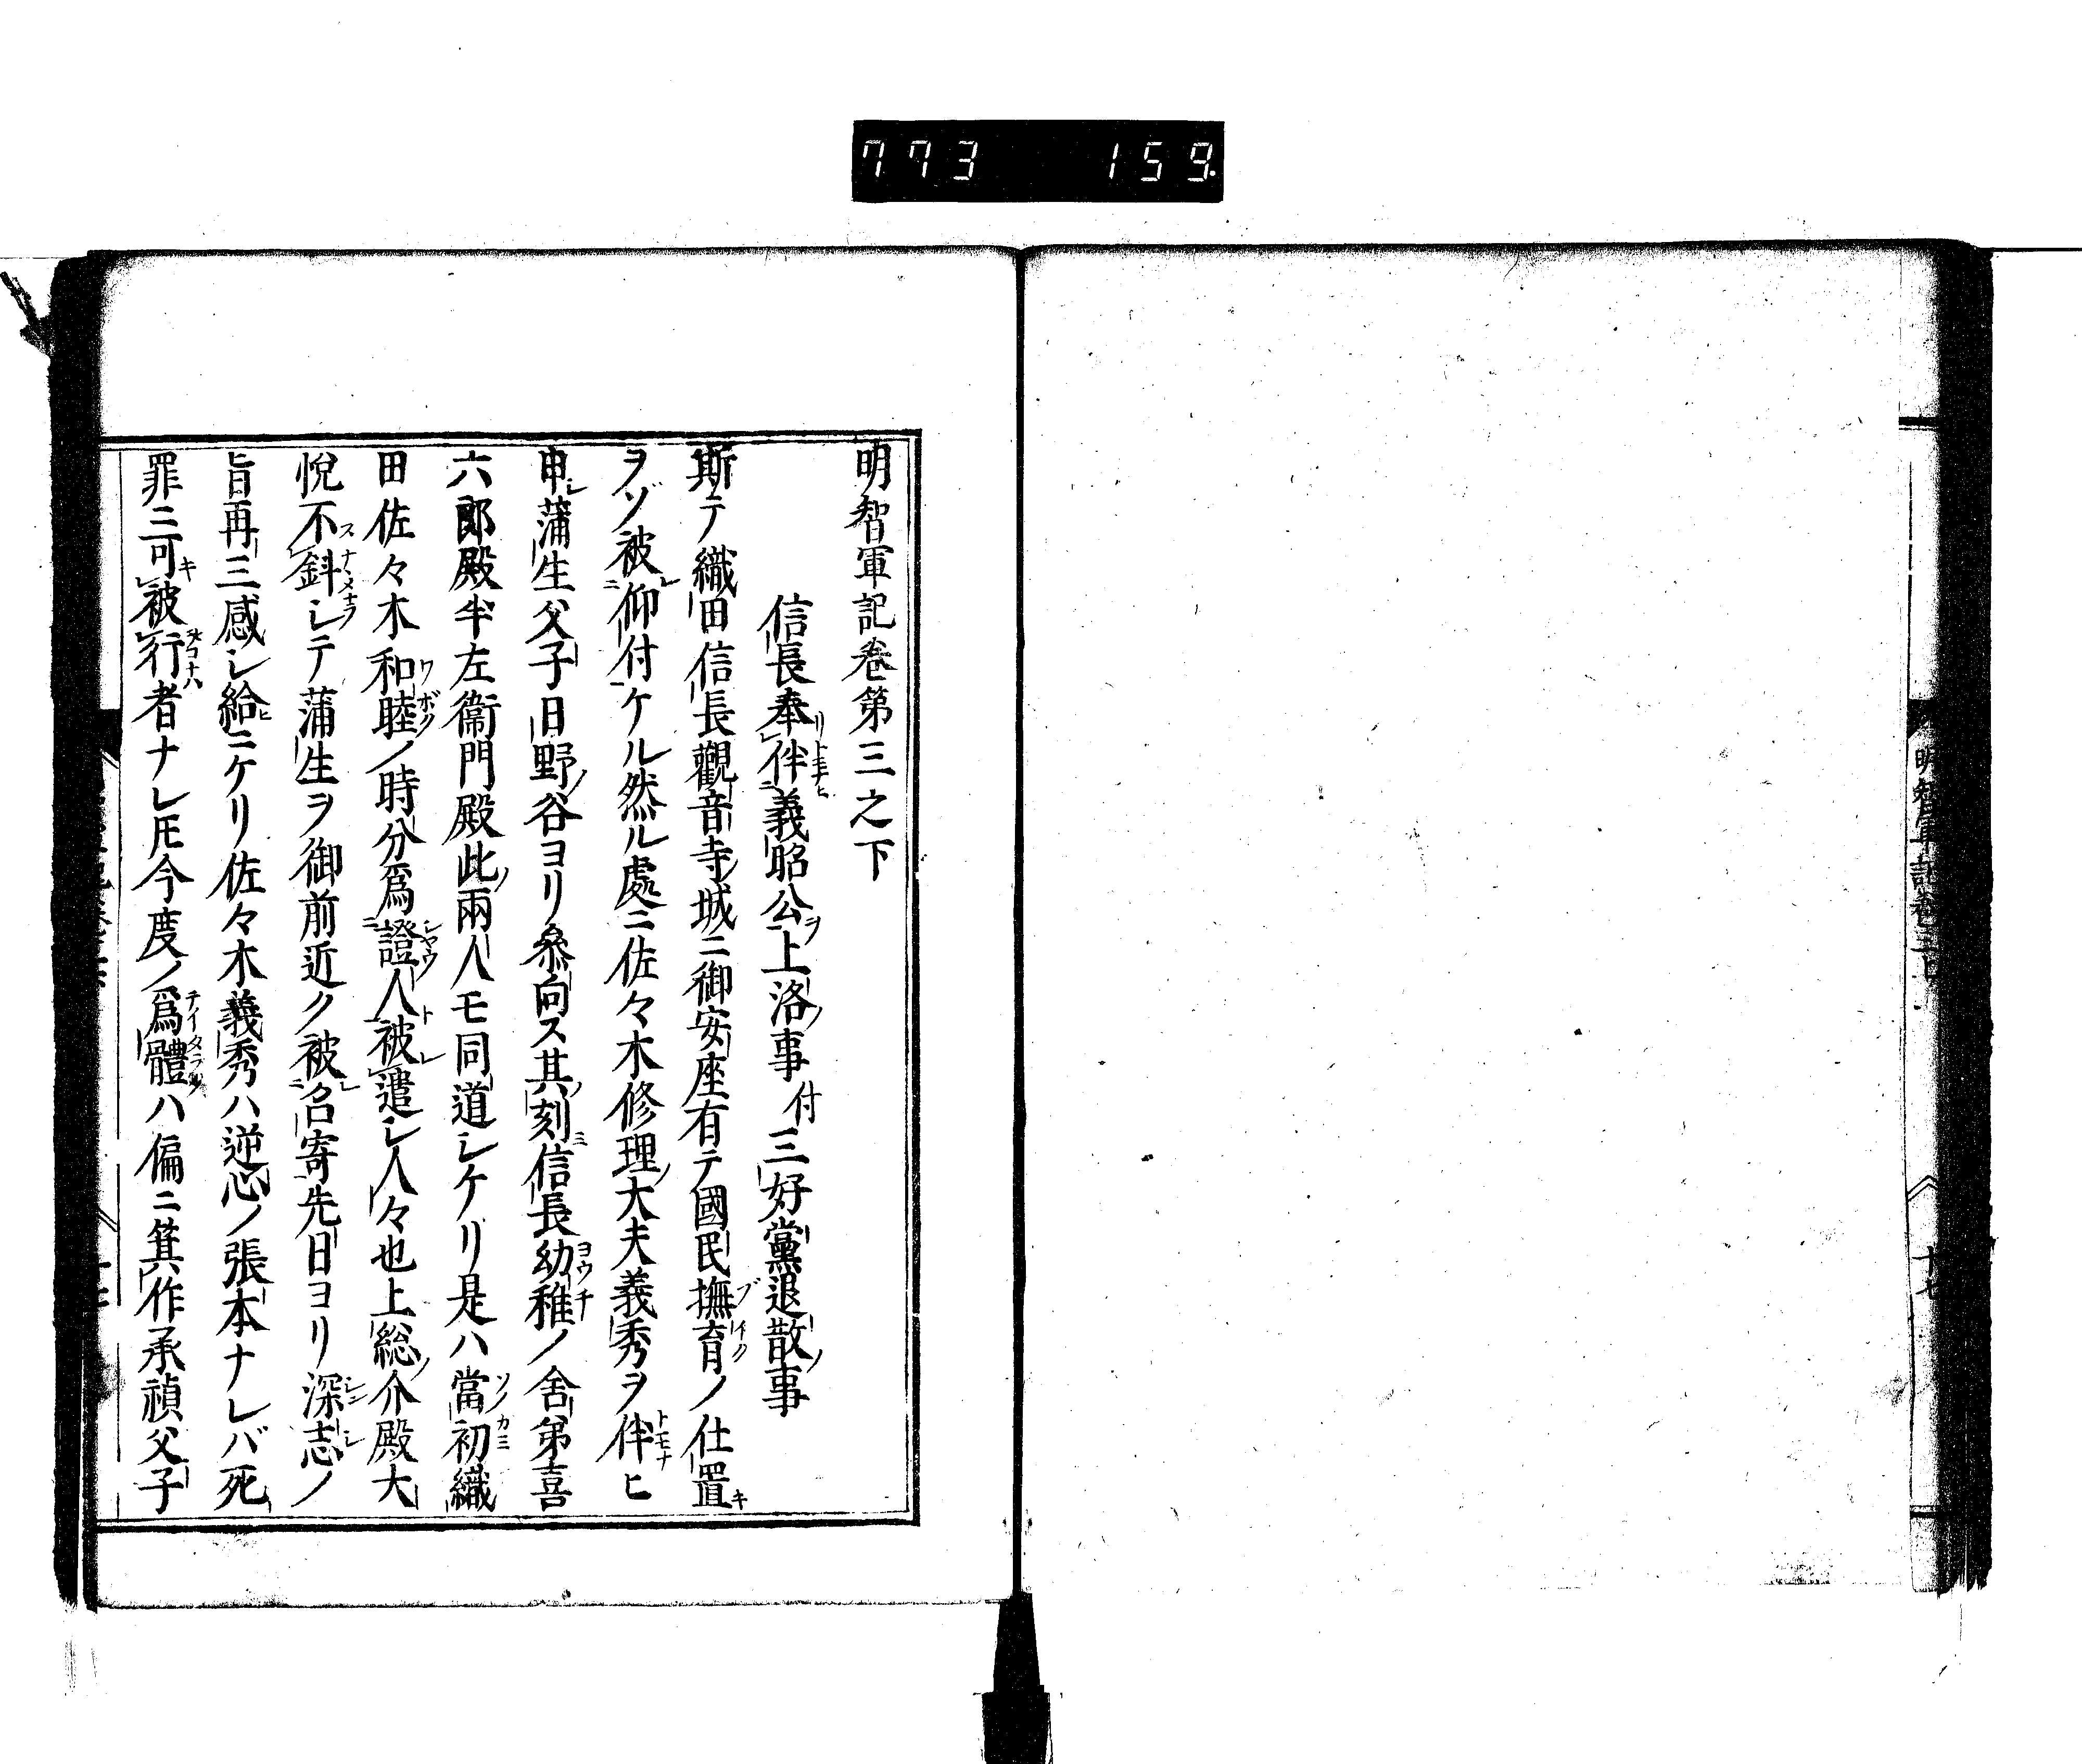 773 159
明智軍記巻三上
十七
明智軍記卷第三之下
信長奉伴義昭公上洛事付三好黨退散事
斯テ織田信長觀音寺城ニ御安座有テ國民撫育ノ仕置
ヲゾ被仰付ケル然ル處ニ佐々木修理大夫義秀ヲ伴ヒ
申蒲生父子日野谷ヨリ參向ス其刻信長幼稚ノ舍弟喜
六郎殿半左衞門殿此兩人モ同道シケリ是ハ當初織
田佐々木和睦ノ時分爲證人被遣シ人々也上総介殿大
悅不斜シテ蒲生ヲ御前近ク被召寄先日ヨリ深志ノ
旨再三感シ給ニケリ佐々木義秀ハ逆心ノ張本ナレバ死
罪ニ可被行者ナレ𪜈今度ノ爲體ハ偏ニ箕作承禎父子